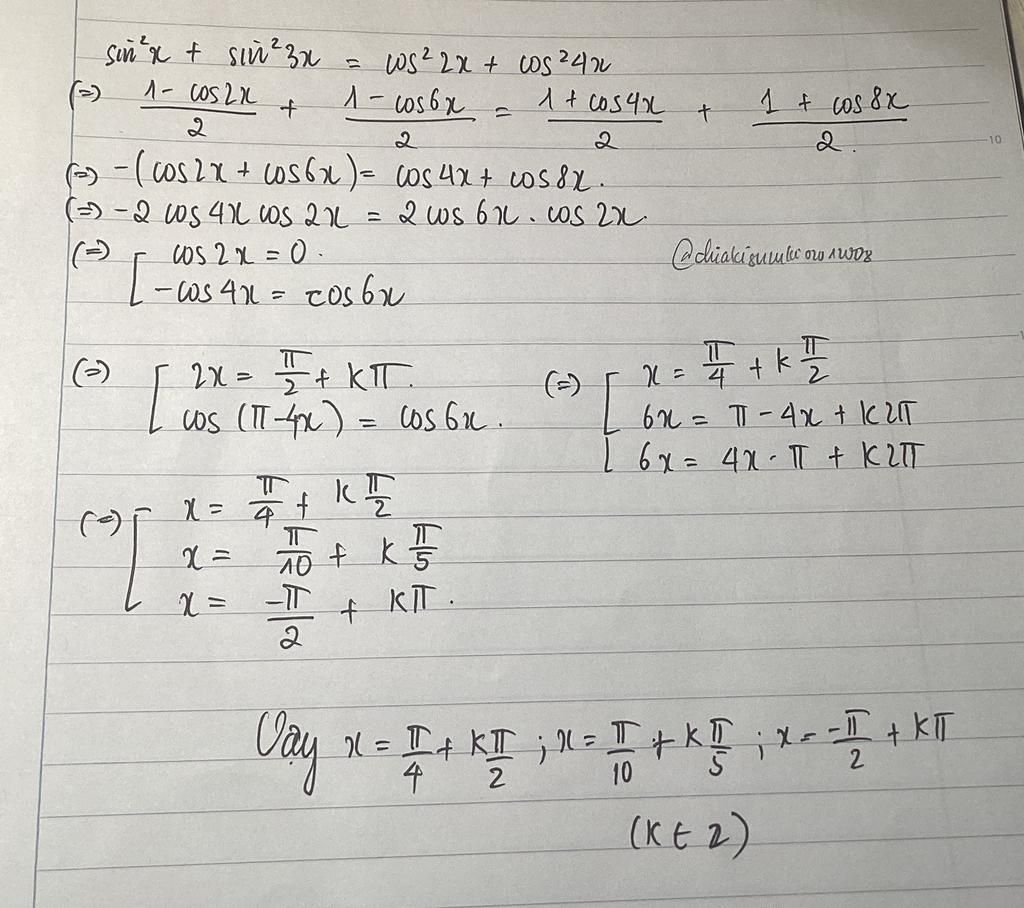 sin²x + sin²3x = cos²2x + cos²4x
(=) (1 - cos2x)/2 + (1 - cos6x)/2 = (1 + cos4x)/2 + (1 + cos8x)/2.
(=) -(cos2x + cos6x) = cos4x + cos8x.
(=) -2 cos4x cos2x = 2cos6x . cos2x.
(=) [ cos2x = 0.
[ -cos4x = cos6x
(=) [ 2x = π/2 + kπ. (=) [ x = π/4 + k π/2
[ cos(π-4x) = cos6x. [ 6x = π - 4x + k2π
[ 6x = 4x - π + k2π
(=) [ x = π/4 + k π/2
x = π/10 + k π/5
x = -π/2 + kπ.
Vậy x = π/4 + kπ/2 ; x = π/10 + kπ/5 ; x = -π/2 + kπ
(k ∈ Z)
10